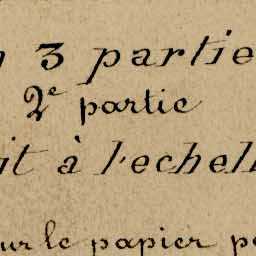 3 partie
2e partie
à l'echell
le papier